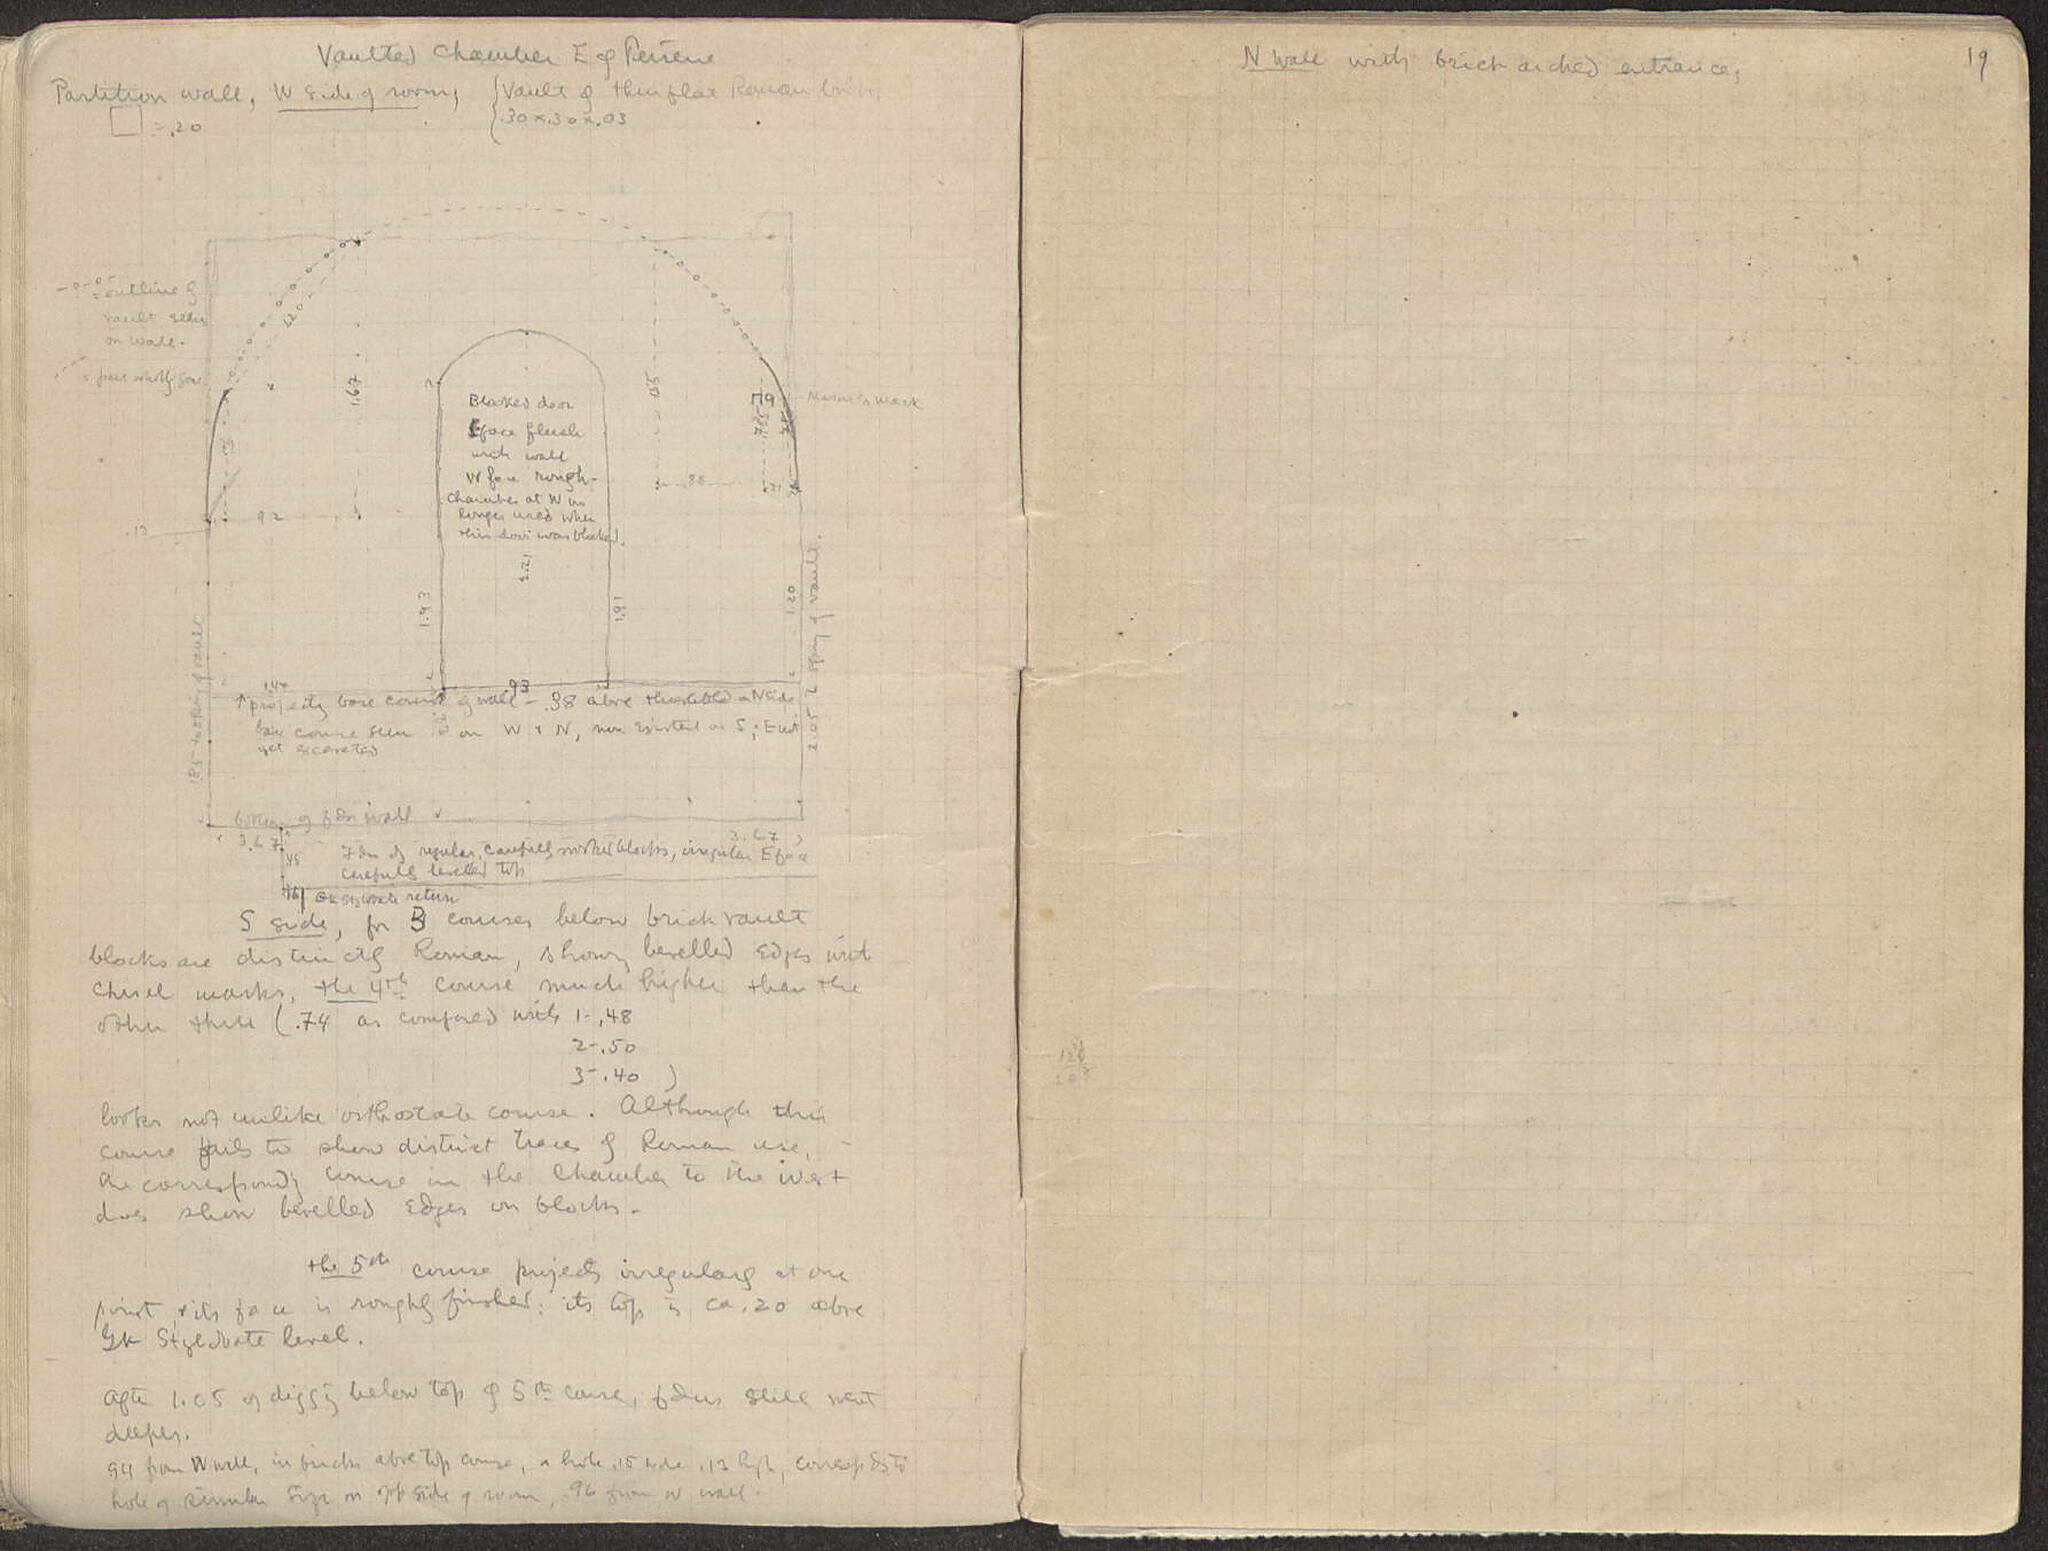 Vaulted Chamber E of Peirene
Partition wall, W side of room,
{Vault of thin flat Roman bricks,
.30 x .30 x .03
□ = .20
-o-o- = outline of
vault seen
on wall.
1.20
1.67
.92
.13
Blocked door
E face flush
with wall
W face rough -
Chamber at W no
longer used when
this door was blocked.
2.21
1.93
1.91
.93
.88
Mason's mark
1.20
1.85 to spring of vault
2.05 to spring of vault.
1.44
↑ projecting base course of wall - .38 above threshold on N side
base course seen on W & N, non existent on S; E not
yet excavated
bottom of fdn wall
3.67
3.67
.45
Fdn of regular, carefully worked blocks, irregular E face
carefully levelled top
Gk stylobate return
S side, for 3 courses below brick vault
blocks are distinctly Roman, showing bevelled edges with
chisel marks, the 4th course much higher than the
other three (.74 as compared with 1-.48
2-.50
3-.40 )
looks not unlike orthostate course. Although this
course fails to show distinct traces of Roman use,
the corresponding course in the Chamber to the West
does show bevelled edges on blocks.
the 5th course projects irregularly at one
point, & its face is roughly finished; its top is ca .20 above
Gk Stylobate level.
After 1.05 of digging below top of 5th course, fdns still went
deeper.
.94 from W wall, in bricks above top course, a hole .15 wide .13 high, corresponds to
hole of similar size on opp side of room, .96 from W wall.
N wall with brick arched entrance,
19